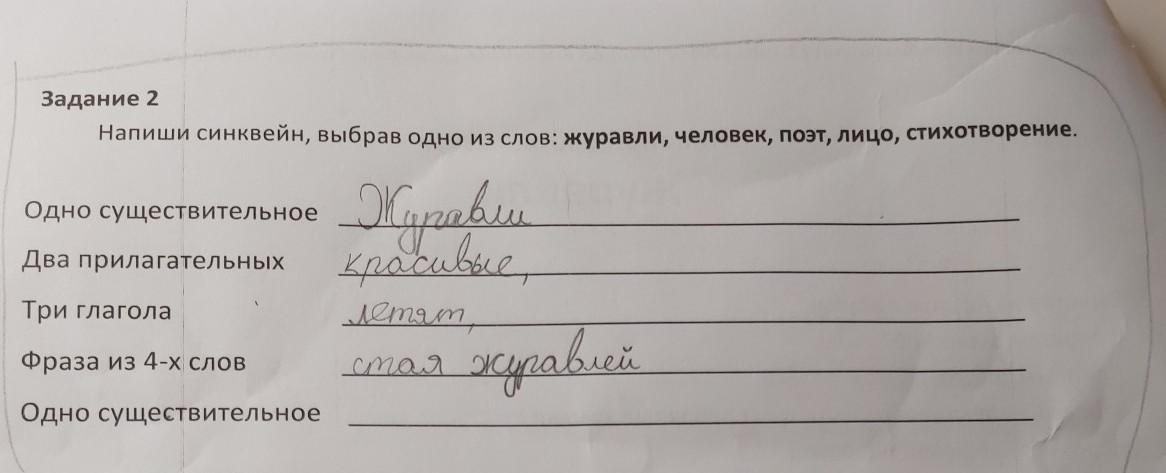 Задание 2
Напиши синквейн, выбрав одно из слов: журавли, человек, поэт, лицо, стихотворение.
Одно существительное Журавли
Два прилагательных красивые,
Три глагола летят,
Фраза из 4-х слов стая журавлей
Одно существительное